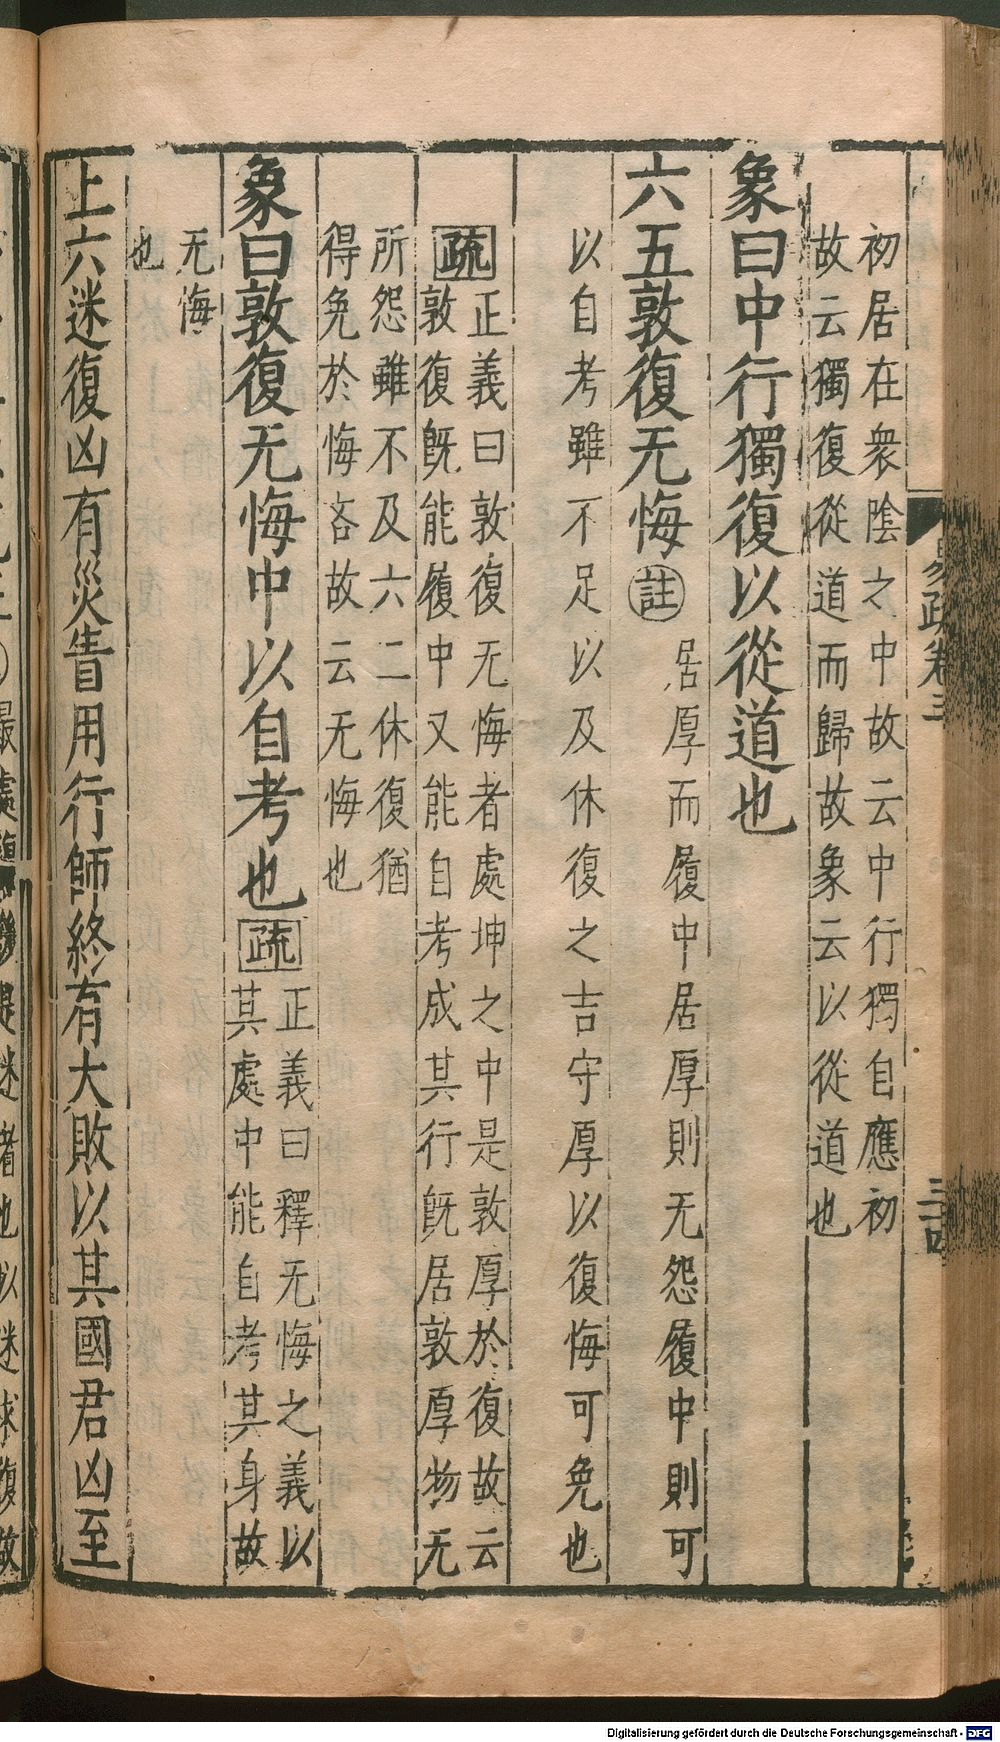 易疏卷三
三四
初居在衆陰之中故云中行獨自應初
故云獨復從道而歸故象云以從道也
象曰中行獨復以從道也
六五敦復无悔註居厚而履中居厚則无怨履中則可
以自考雖不足以及休復之吉守厚以復悔可免也
疏正義曰敦復无悔者處坤之中是敦厚於復故云
敦復旣能履中又能自考成其行旣居敦厚物无
所怨雖不及六二休復猶
得免於悔吝故云无悔也
象曰敦復无悔中以自考也疏正義曰釋无悔之義以
其處中能自考其身故
无悔
也
上六迷復凶有災眚用行師終有大敗以其國君凶至
迷者也以迷求復故
Digitalisierung gefördert durch die Deutsche Forschungsgemeinschaft - DFG